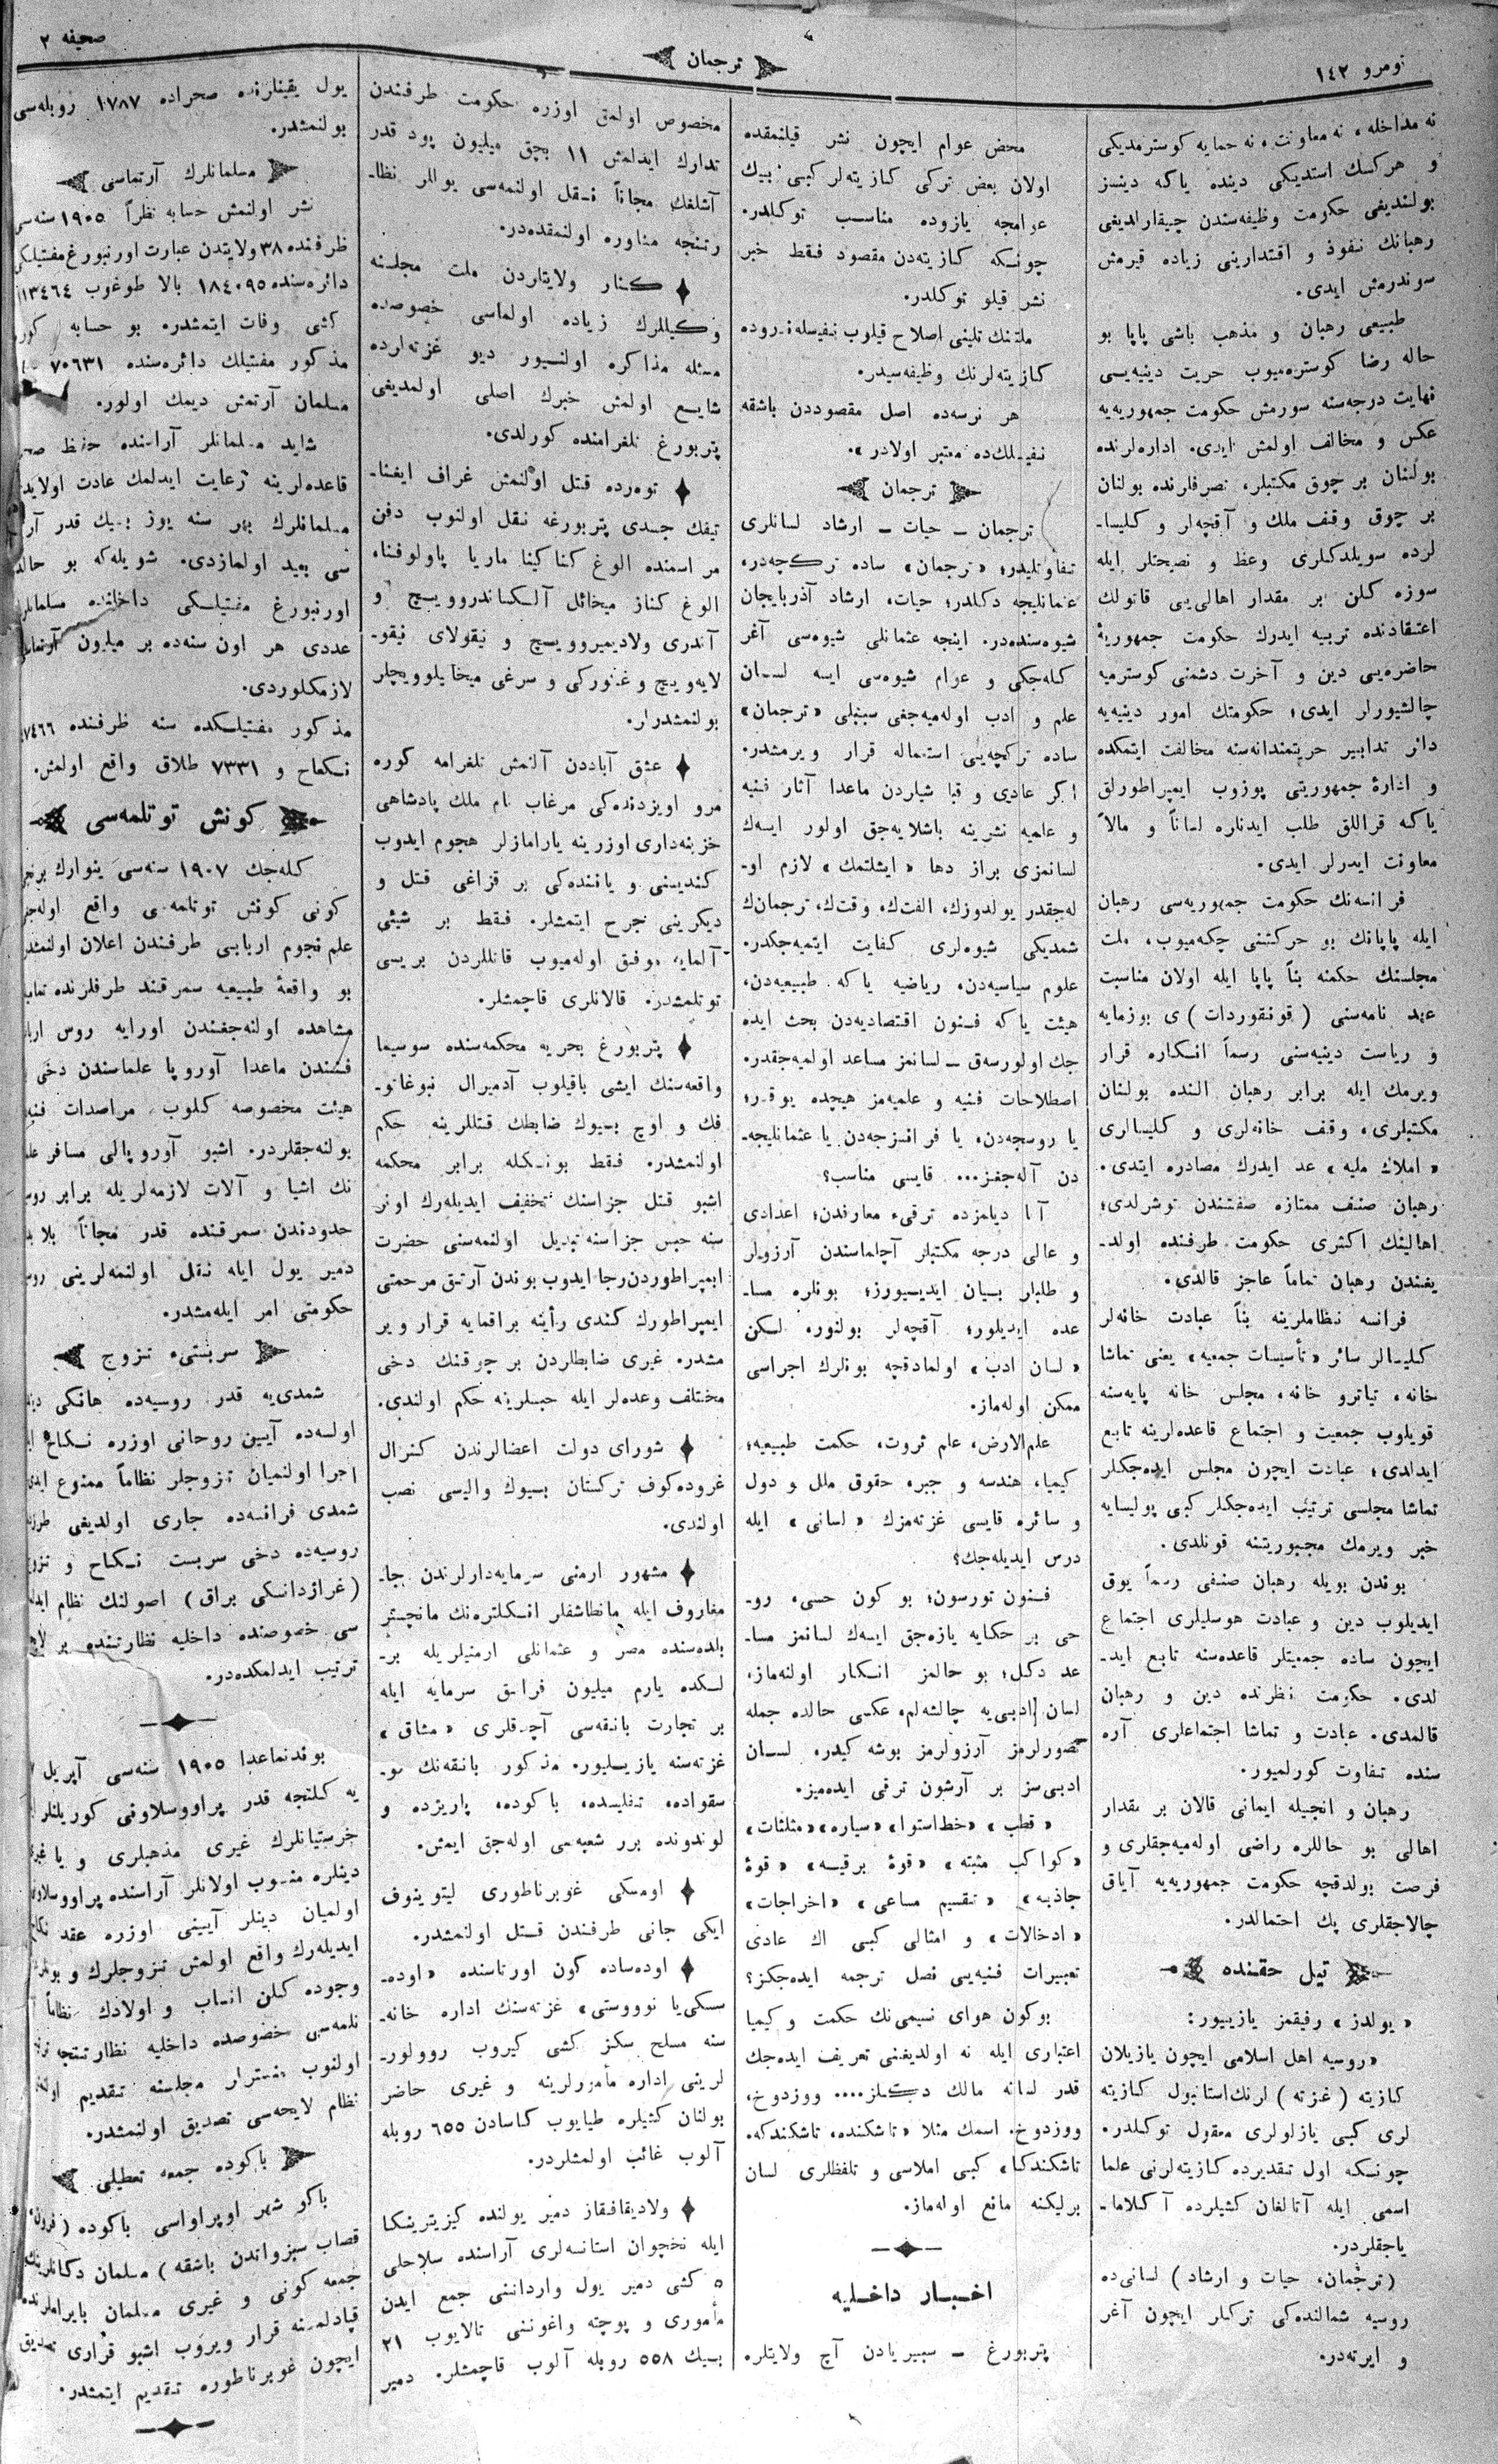 نومرو ١٤٢
ترجمان
صحيفه ٢
نه مداخله، نه معاونت، نه حمايه كوسترمديكى
و هركسك استديكى دينده ياكه دينسز
بولنديغى حكومت وظيفه‌سندن چيقارلديغى
رهبانك نفوذ و اقتدارينى زياده قيرمش
سوندرمش ايدى.
طبيعى رهبان و مذهب باشى پاپا بو
حاله رضا كوسترميوب حريت دينيه‌يى
نهايت درجه‌سنه سورمش حكومت جمهوريه‌يه
عكس و مخالف اولمش ايدى. اداره‌لرنده
بولنان بر چوق مكتبلر، تصرفلرنده بولنان
بر چوق وقف ملك و آقچه‌لر و كليسا-
لرده سويلدكلرى وعظ و نصيحتلر ايله
سوزه كلن بر مقدار اهالى‌يى قاتولك
اعتقادنده تربيه ايدرك حكومت جمهوريۀ
حاضره‌يى دين و آخرت دشمنى كوسترميه
چالشيورلر ايدى؛ حكومتك امور دينيه‌يه
دائر تدابير حريتمندانه‌سنه مخالفت ايتمكده
و ادارۀ جمهوريتى پوزوب ايمپراطورلق
ياكه قراللق طلب ايدنلره لساناً و مالاً
معاونت ايدرلر ايدى.
فرانسه‌نك حكومت جمهوريه‌سى رهبان
ايله پاپانك بو حركتنى چكه‌ميوب، ملت
مجلسنك حكمنه بناً پاپا ايله اولان مناسبت
عهد نامه‌سنى (قونقوردات) ى بوزمايه
و رياست دينيه‌سنى رسماً انكاره قرار
ويرمك ايله برابر رهبان النده بولنان
مكتبلرى، وقف خانه‌لرى و كليسالرى
«املاك مليه» عد ايدرك مصادره ايتدى.
رهبان صنف ممتازه صفتندن توشرلدى؛
اهالينك اكثرى حكومت طرفنده اولد-
يغندن رهبان تماماً عاجز قالدى.
فرانسه نظاملرينه بناً عبادت خانه‌لر
كليسالر سائر «تأسيسات جمعيه» يعنى تماشا
خانه، تياترو خانه، مجلس خانه پايه‌سنه
قويلوب جمعيت و اجتماع قاعده‌لرينه تابع
ايدلدى؛ عبادت ايچون مجلس ايده‌جكلر
تماشا مجلسى ترتيب ايده‌جكلر كبى پوليسايه
خبر ويرمك مجبوريتنه قونلدى.
بوندن بويله رهبان صنفى رسماً يوق
ايديلوب دين و عبادت هوسليلرى اجتماع
ايچون ساده جمعيتلر قاعده‌سنه تابع ايد-
لدى. حكومت نظرنده دين و رهبان
قالمدى. عبادت و تماشا اجتماعلرى آره
سنده تفاوت كورلميور.
رهبان و انجيله ايمانى قالان بر مقدار
اهالى بو حاللره راضى اوله‌ميه‌جقلرى و
فرصت بولدقچه حكومت جمهوريه‌يه آياق
چالاجقلرى پك احتمالدر.
تيل حقنده
«يولدز» رفيقمز يازييور:
«روسيه اهل اسلامى ايچون يازيلان
كازيته (غزته) لرنك استانبول كازيته
لرى كبى يازلولرى معقول توكلدر.
چونسكه اول تقديرده كازيته‌لرنى علما
اسمى ايله آتالغان كشيلرده آكلاما-
ياجقلردر.
(ترجمان، حيات و ارشاد) لسانى ده
روسيه شمالنده‌كى تركلر ايچون آغر
و ايرته‌در.
محض عوام ايچون نشر قيلنمقده
اولان بعض تركى كازيته‌لر كبى نييك
عوامچه يازوده مناسب توكلدر.
چونسكه كازيته‌دن مقصود فقط خبر
نشر قيلو توكلدر.
ملتنك تلينى اصلاح قيلوب نفيسلەندروده
كازيته‌لرنك وظيفه‌سيدر.
هر نرسه‌ده اصل مقصوددن باشقه
نفيسلك‌ده معتبر اولادر».
ترجمان
ترجمان ـ حيات ـ ارشاد لسانلرى
تفاوتليدر؛ «ترجمان» ساده تركچه‌در،
عثمانليجه دكلدر؛ حيات، ارشاد آذربايجان
شيوه‌سنده‌در. اينجه عثمانلى شيوه‌سى آغر
كله‌جكى و عوام شيوه‌سى ايسه لسان
علم و ادب اوله‌ميه‌جغى سببلى «ترجمان»
ساده تركچه‌يى استعماله قرار ويرمشدر.
اكر عادى و قبا شيلردن ماعدا آثار فنيه
و علميه نشرينه باشلايه‌جق اولور ايسه‌ك
لسانمزى براز دها «ايشلتمك» لازم او-
له‌جقدر يولدوزك، الفت‌ك، وقت‌ك، ترجمان‌ك
شمديكى شيوه‌لرى كفايت ايتميه‌جكدر.
علوم سياسيه‌دن، رياضيه ياكه طبيعيه‌دن،
هيئت ياكه فنون اقتصاديه‌دن بحث ايده
جك اولورسه‌ق ـ لسانمز مساعد اولميه‌جقدر.
اصطلاحات فنيه و علميه‌مز هيچده يوقدر؛
يا روسچه‌دن، يا فرانسزجه‌دن يا عثمانليجه-
دن آله‌جغز... قايسى مناسب؟
آنا ديلمزده ترقىء معارفدن؛ اعدادى
و عالى درجه مكتبلر آچلماسندن آرزولر
و طلبلر بيان ايديسيورز؛ بونلره مسا-
عده ايديلور؛ آقچه‌لر بولنور، لكن
«لسان ادب» اولمادقچه بونلرك اجراسى
ممكن اوله‌ماز.
علم‌الارض، علم ثروت، حكمت طبيعيه،
كيميا، هندسه و جبر، حقوق ملل و دول
و سائره قايسى غزته‌مزك «لسانى» ايله
درس ايديله‌جك؟
فنون تورسون؛ بو كون حسى، رو-
حى بر حكايه يازه‌جق ايسه‌ك لسانمز مسا-
عد دكل؛ بو حالمز انكار اولنه‌ماز،
لسان ادبى‌يه چالشه‌لم، عكسى حالده جمله
تصورلرمز آرزولرمز بوشه كيدر، لسان
ادبى‌سز بر آرشون ترقى ايده‌ميز.
«قطب» «خط استوا» «سياره» «مثلثات»
«كواكب مثبته» «قوۀ برقيه» «قوۀ
جاذبه» «تقسيم مساعى» «اخراجات»
«ادخالات» و امثالى كبى اك عادى
تعبيرات فنيه‌يى نصل ترجمه ايده‌جكز؟
بوكون هواى نسيمى‌نك حكمت و كيميا
اعتبارى ايله نه اولديغنى تعريف ايده‌جك
قدر لسانه مالك دكلز.... ووزدوخ،
ووزدوخ. اسمك مثلا «تاشكنده، تاشكندكه،
تاشكندكا» كبى املاسى و تلفظلرى لسان
برليكنه مانع اوله‌ماز.
اخبار داخليه
پتربورغ ـ سيبريادن آچ ولايتلره
مخصوص اولمق اوزره حكومت طرفندن
تدارك ايدلمش ١١ بچق ميليون پود قدر
آشلغك مجاناً نقل اولنمه‌سى يوللر نظا-
رتنجه مشاوره اولنمقده‌در.
كنار ولايتلردن ملت مجلسنه
وكيللرك زياده اولماسى خصوصده
مسئله مذاكره اولنيور ديو غزته‌لرده
شايع اولمش خبرك اصلى اولمديغى
پتربورغ تلغرامنده كورلدى.
توه‌رده قتل اولنمش غراف ايغنا-
تيفك جسدى پتربورغه نقل اولنوب دفن
مراسمنده الوغ كناكينا ماريا پاولوفنا،
الوغ كناز ميخائل آلكساندروويچ و
آندرى ولاديميروويچ و نيقولاى نيقو-
لايه‌ويچ و غيئوركى و سرغى ميخايلوويچلر
بولنمشدرلر.
عشق آباددن آلنمش تلغرامه كوره
مرو اويزدنده‌كى مرغاب نام ملك پادشاهى
خزينه‌دارى اوزرينه يارامازلر هجوم ايدوب
كنديسنى و ياننده‌كى بر قزاغى قتل و
ديكرينى جرح ايتمشلر. فقط بر شيئى
آلمايه موفق اوله‌ميوب قاتللردن بريسى
توتلمشدر. قالانلرى قاچمشلر.
پتربورغ بحريه محكمه‌سنده سوسيما
واقعه‌سنك ايشى باقيلوب آدميرال نيوغاتو-
فك و اوچ بيوك ضابطك قتللرينه حكم
اولنمشدر. فقط بونكله برابر محكمه
اشبو قتل جزاسنك تخفيف ايديله‌رك اونر
سنه حبس جزاسنه تبديل اولنمه‌سنى حضرت
ايمپراطوردن رجا ايدوب بوندن آرتق مرحمتى
ايمپراطورك كندى رأينه براقمايه قرار وير
مشدر. غيرى ضابطلردن بر چوقنك دخى
مختلف وعده‌لر ايله حبسلرينه حكم اولندى.
شوراى دولت اعضالرندن كنرال
غروده‌كوف تركستان بيوك واليسى نصب
اولندى.
مشهور ارمنى سرمايه‌دارلرندن جا-
مغاروف ايله مانطاشفلر انكلتره‌نك مانچستر
بلده‌سنده مصر و عثمانلى ارمنيلريله بر-
لكده يارم ميليون فرانق سرمايه ايله
بر تجارت بانقه‌سى آچدقلرى «مشاق»
غزته‌سنه يازيليور. مذكور بانقه‌نك مو-
سقواده، تفليسده، باكوده، پاريزده و
لوندونده برر شعبه‌سى اوله‌جق ايمش.
اومسكى غوبرناطورى ليتوينوف
ايكى جانى طرفندن قتل اولنمشدر.
اوده‌ساده كون اورتاسنده «اوده-
سسكى‌يا نوووستى» غزته‌سنك اداره خانه-
سنه مسلح سكز كشى كيروب روولور-
لرينى اداره مأمورلرينه و غيرى حاضر
بولنان كشيلره طيايوب كاسادن ٦٥٥ روبله
آلوب غائب اولمشلردر.
ولاديقافقاز دمير يولنده كيزيتريتسكا
ايله نخچوان استانسه‌لرى آراسنده سلاحلى
٥ كشى دمير يول وارداتنى جمع ايدن
مأمورى و پوچته واغوننى تالايوب ٢١
بيك ٥٥٨ روبله آلوب قاچمشلر. دمير
يول يقينلرنده صحراده ١٧٨٧ روبله‌سى
بولنمشدر.
مسلمانلرك آرتماسى
نشر اولنمش حسابه نظراً ١٩٠٥ سنه‌سى
ظرفنده ٣٨ ولايتدن عبارت اورنبورغ مفتيلكى
دائره‌سنده ١٨٤٠٩٥ بالا طوغوب ١١٣٤٦٤
كشى وفات ايتمشدر. بو حسابه كوره
مذكور مفتيلك دائره‌سنده ٧٠٦٣١
مسلمان آرتمش ديمك اولور.
شايد مسلمانلر آراسنده حفظ صحت
قاعده‌لرينه رعايت ايدلمك عادت اولايدى
مسلمانلرك بهر سنه يوز بيك قدر آرتما
سى بعيد اولمازدى. شويله‌كه بو حالده
اورنبورغ مفتيلكى داخلنده مسلمانلرك
عددى هر اون سنه‌ده بر ميليون آرتماسى
لازمكلوردى.
مذكور مفتيلكده سنه ظرفنده
نكاح و ٧٣٣١ طلاق واقع اولمش.
كونش توتلمه‌سى
كله‌جك ١٩٠٧ سنه‌سى ينوارك برنجى
كونى كونش توتلمه‌سى واقع اوله‌جغى
علم نجوم اربابى طرفندن اعلان اولنمشدر
بو واقعۀ طبيعيه سمرقند طرفلرنده تماماً
مشاهده اولنه‌جغندن اورايه روس ارباب
فنندن ماعدا آوروپا علماسندن دخى
هيئت مخصوصه كلوب مراصدات فنيه‌ده
بولنه‌جقلردر. اشبو آوروپالى مسافر علما
نك اشيا و آلات لازمه‌لريله برابر روس
حدودندن سمرقنده قدر مجاناً بلا بدل
دمير يول ايله نقل اولنمه‌لرينى روس
حكومتى امر ايله‌مشدر.
سربستىء تزوج
شمدى‌يه قدر روسيه‌ده هانكى دينده
اولسه‌ده آيين روحانى اوزره نكاح
اجرا اولنميان تزوجلر نظاماً ممنوع ايدى
شمدى فرانسه‌ده جارى اولديغى طرزده
روسيه‌ده دخى سربست نكاح و تزوج
(غراژدانسكى براق) اصولنك نظام ايدلمه
سى خصوصنده داخليه نظارتنده بر لايحه
ترتيب ايدلمكده‌در.
بوندنماعدا ١٩٠٥ سنه‌سى آپريل
يه كلنجه قدر پراووسلاونى كوريلنلر
خرستيانلرك غيرى مذهبلرى و يا غيرى
دينلره منسوب اولانلر آراسنده پراووسلاونى
اولميان دينلر آيينى اوزره عقد نكاح
ايديله‌رك واقع اولمش تزوجلرك و بونلردن
وجوده كلن انساب و اولادك نظاماً
نلمه‌سى خصوصده داخليه نظارتنجه ترتيب
اولنوب مينسترلر مجلسنه تقديم اولنان
نظام لايحه‌سى تصديق اولنمشدر.
باكوده جمعه تعطيلى
باكو شهر اوپراواسى باكوده (فرون،
قصاب سبزواندن باشقه) مسلمان دكانلرينك
جمعه كونى و غيرى مسلمان بايراملرنده
قپادلمسنه قرار ويروب اشبو قرارى تصديق
ايچون غوبرناطوره تقديم ايتمشدر.